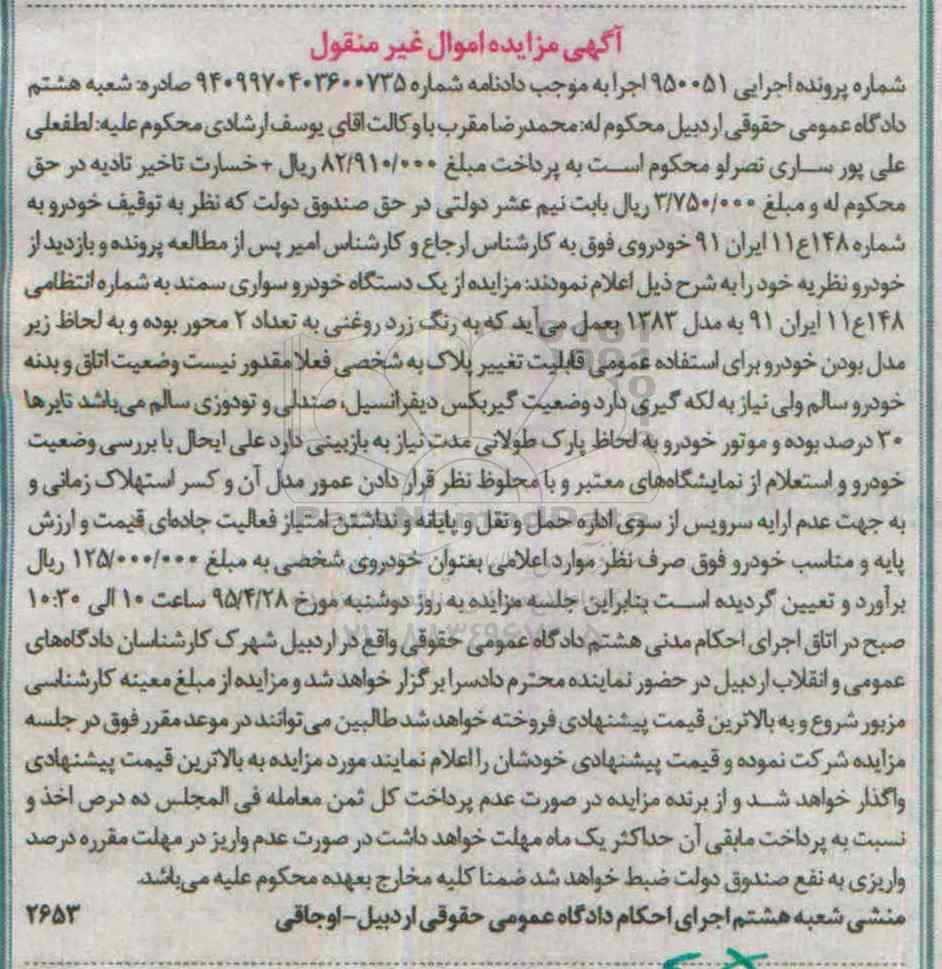 آگهی مزایده اموال غیر منقول
شماره پرونده اجرایی ۹۵۰۰۵۱ اجرا به موجب دادنامه شماره ۹۴۰۹۹۷۰۴۰۳۶۰۰۷۳۵ صادره: شعبه هشتم
دادگاه عمومی حقوقی اردبیل محکوم له: محمدرضا مقرب با وکالت اقای یوسف ارشادی محکوم علیه: لطفعلی
علی پور ساری نصرلو محکوم است به پرداخت مبلغ ۸۲/۹۱۰/۰۰۰ ریال + خسارت تاخیر تادیه در حق
محکوم له و مبلغ ۳/۷۵۰/۰۰۰ ریال بابت نیم عشر دولتی در حق صندوق دولت که نظر به توقیف خودرو به
شماره ۱۴۸ع۱۱ ایران ۹۱ خودروی فوق به کارشناس ارجاع و کارشناس امیر پس از مطالعه پرونده و بازدید از
خودرو نظریه خود را به شرح ذیل اعلام نمودند: مزایده از یک دستگاه خودرو سواری سمند به شماره انتظامی
۱۴۸ع۱۱ ایران ۹۱ به مدل ۱۳۸۳ بعمل می‌آید که به رنگ زرد روغنی به تعداد ۲ محور بوده و به لحاظ زیر
مدل بودن خودرو برای استفاده عمومی قابلیت تغییر پلاک به شخصی فعلا مقدور نیست وضعیت اتاق و بدنه
خودرو سالم ولی نیاز به لکه گیری دارد وضعیت گیربکس دیفرانسیل، صندلی و تودوزی سالم می‌باشد تایرها
۳۰ درصد بوده و موتور خودرو به لحاظ پارک طولانی مدت نیاز به بازبینی دارد علی ایحال با بررسی وضعیت
خودرو و استعلام از نمایشگاه‌های معتبر و با محلوظ نظر قرار دادن عمور مدل آن و کسر استهلاک زمانی و
به جهت عدم ارایه سرویس از سوی اداره حمل و نقل و پایانه و نداشتن امتیاز فعالیت جاده‌ای قیمت و ارزش
پایه و مناسب خودرو فوق صرف نظر موارد اعلامی بعنوان خودروی شخصی به مبلغ ۱۲۵/۰۰۰/۰۰۰ ریال
برآورد و تعیین گردیده است بنابراین جلسه مزایده به روز دوشنبه مورخ ۹۵/۴/۲۸ ساعت ۱۰ الی ۱۰:۳۰
صبح در اتاق اجرای احکام مدنی هشتم دادگاه عمومی حقوقی واقع در اردبیل شهرک کارشناسان دادگاه‌های
عمومی و انقلاب اردبیل در حضور نماینده محترم دادسرا برگزار خواهد شد و مزایده از مبلغ معینه کارشناسی
مزبور شروع و به بالاترین قیمت پیشنهادی فروخته خواهد شد طالبین می‌توانند در موعد مقرر فوق در جلسه
مزایده شرکت نموده و قیمت پیشنهادی خودشان را اعلام نمایند مورد مزایده به بالاترین قیمت پیشنهادی
واگذار خواهد شد و از برنده مزایده در صورت عدم پرداخت کل ثمن معامله فی المجلس ده درص اخذ و
نسبت به پرداخت مابقی آن حداکثر یک ماه مهلت خواهد داشت در صورت عدم واریز در مهلت مقرره درصد
واریزی به نفع صندوق دولت ضبط خواهد شد ضمنا کلیه مخارج بعهده محکوم علیه می‌باشد.
منشی شعبه هشتم اجرای احکام دادگاه عمومی حقوقی اردبیل-اوجاقی ۲۶۵۳